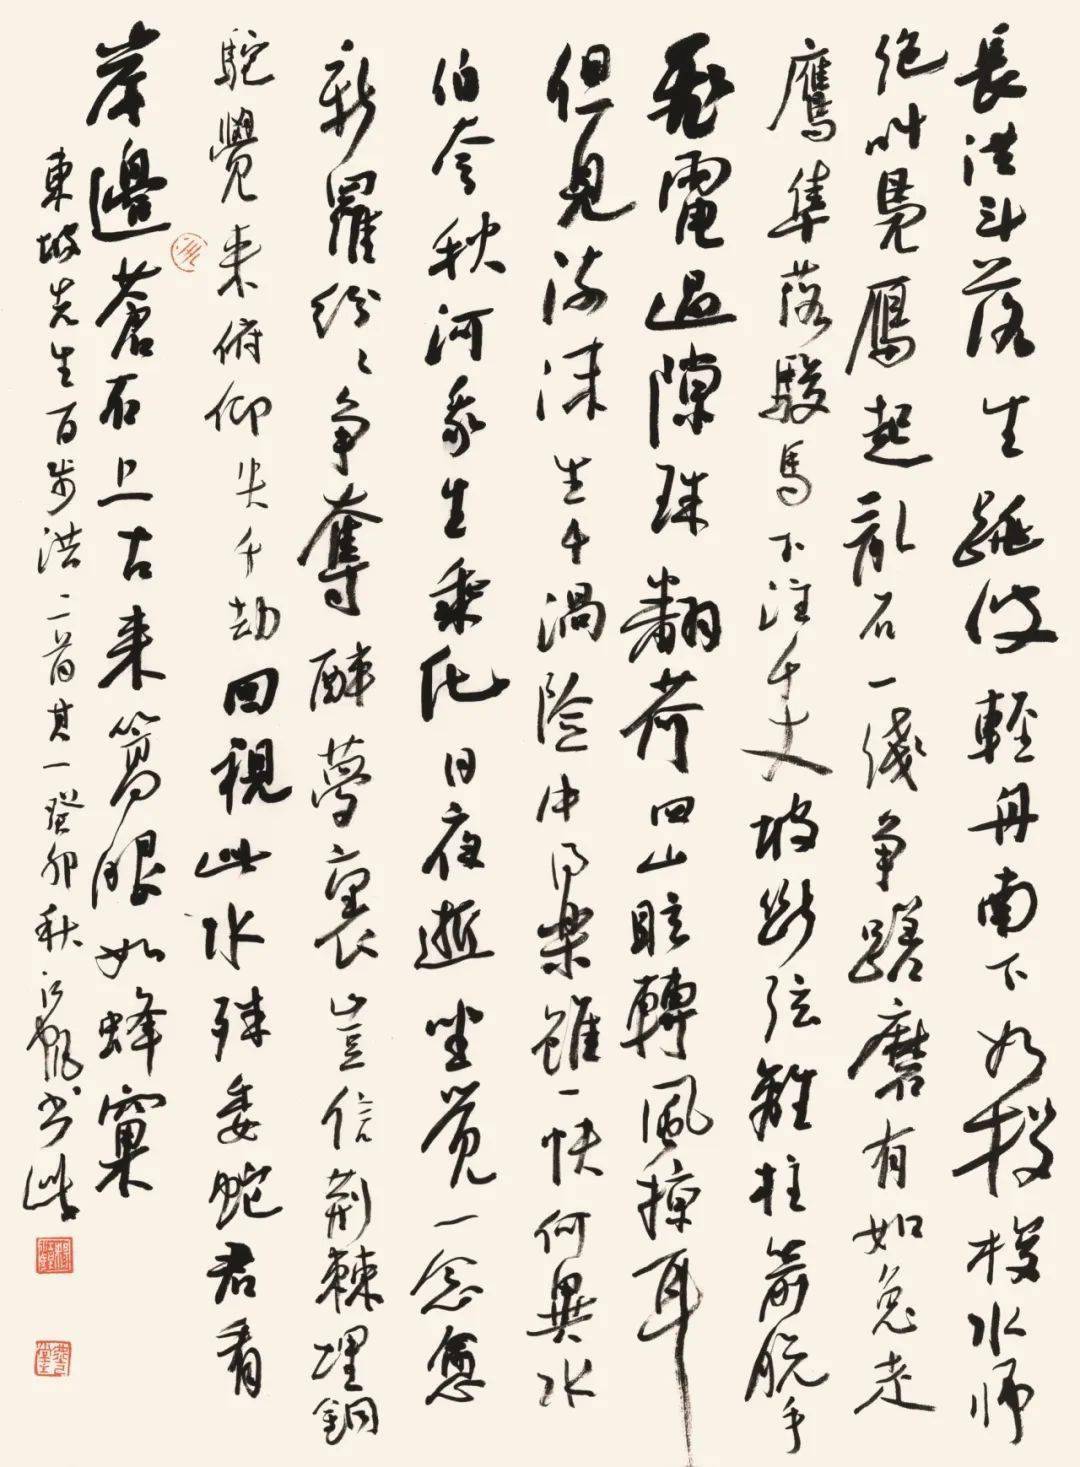 長洪斗落生跳波輕舟南下如投梭水師
絶叫鳧鴈起亂石一綫爭蹉磨有如兔走
鷹隼落駿馬下注千丈坡斷弦離柱箭脱手
飛電過隙珠翻荷四山眩轉風掠耳
但見流沫生千渦險中得樂雖一快何異水
伯夸秋河我生乘化日夜逝坐覺一念愈
新羅紛々爭奪醉夢裏豈信荊棘埋銅
駝覺來俯仰失千劫回視此水殊委蛇君看
岸邊蒼石上古來篙眼如蜂窠
東坡先生百步洪二首其一癸卯秋书此